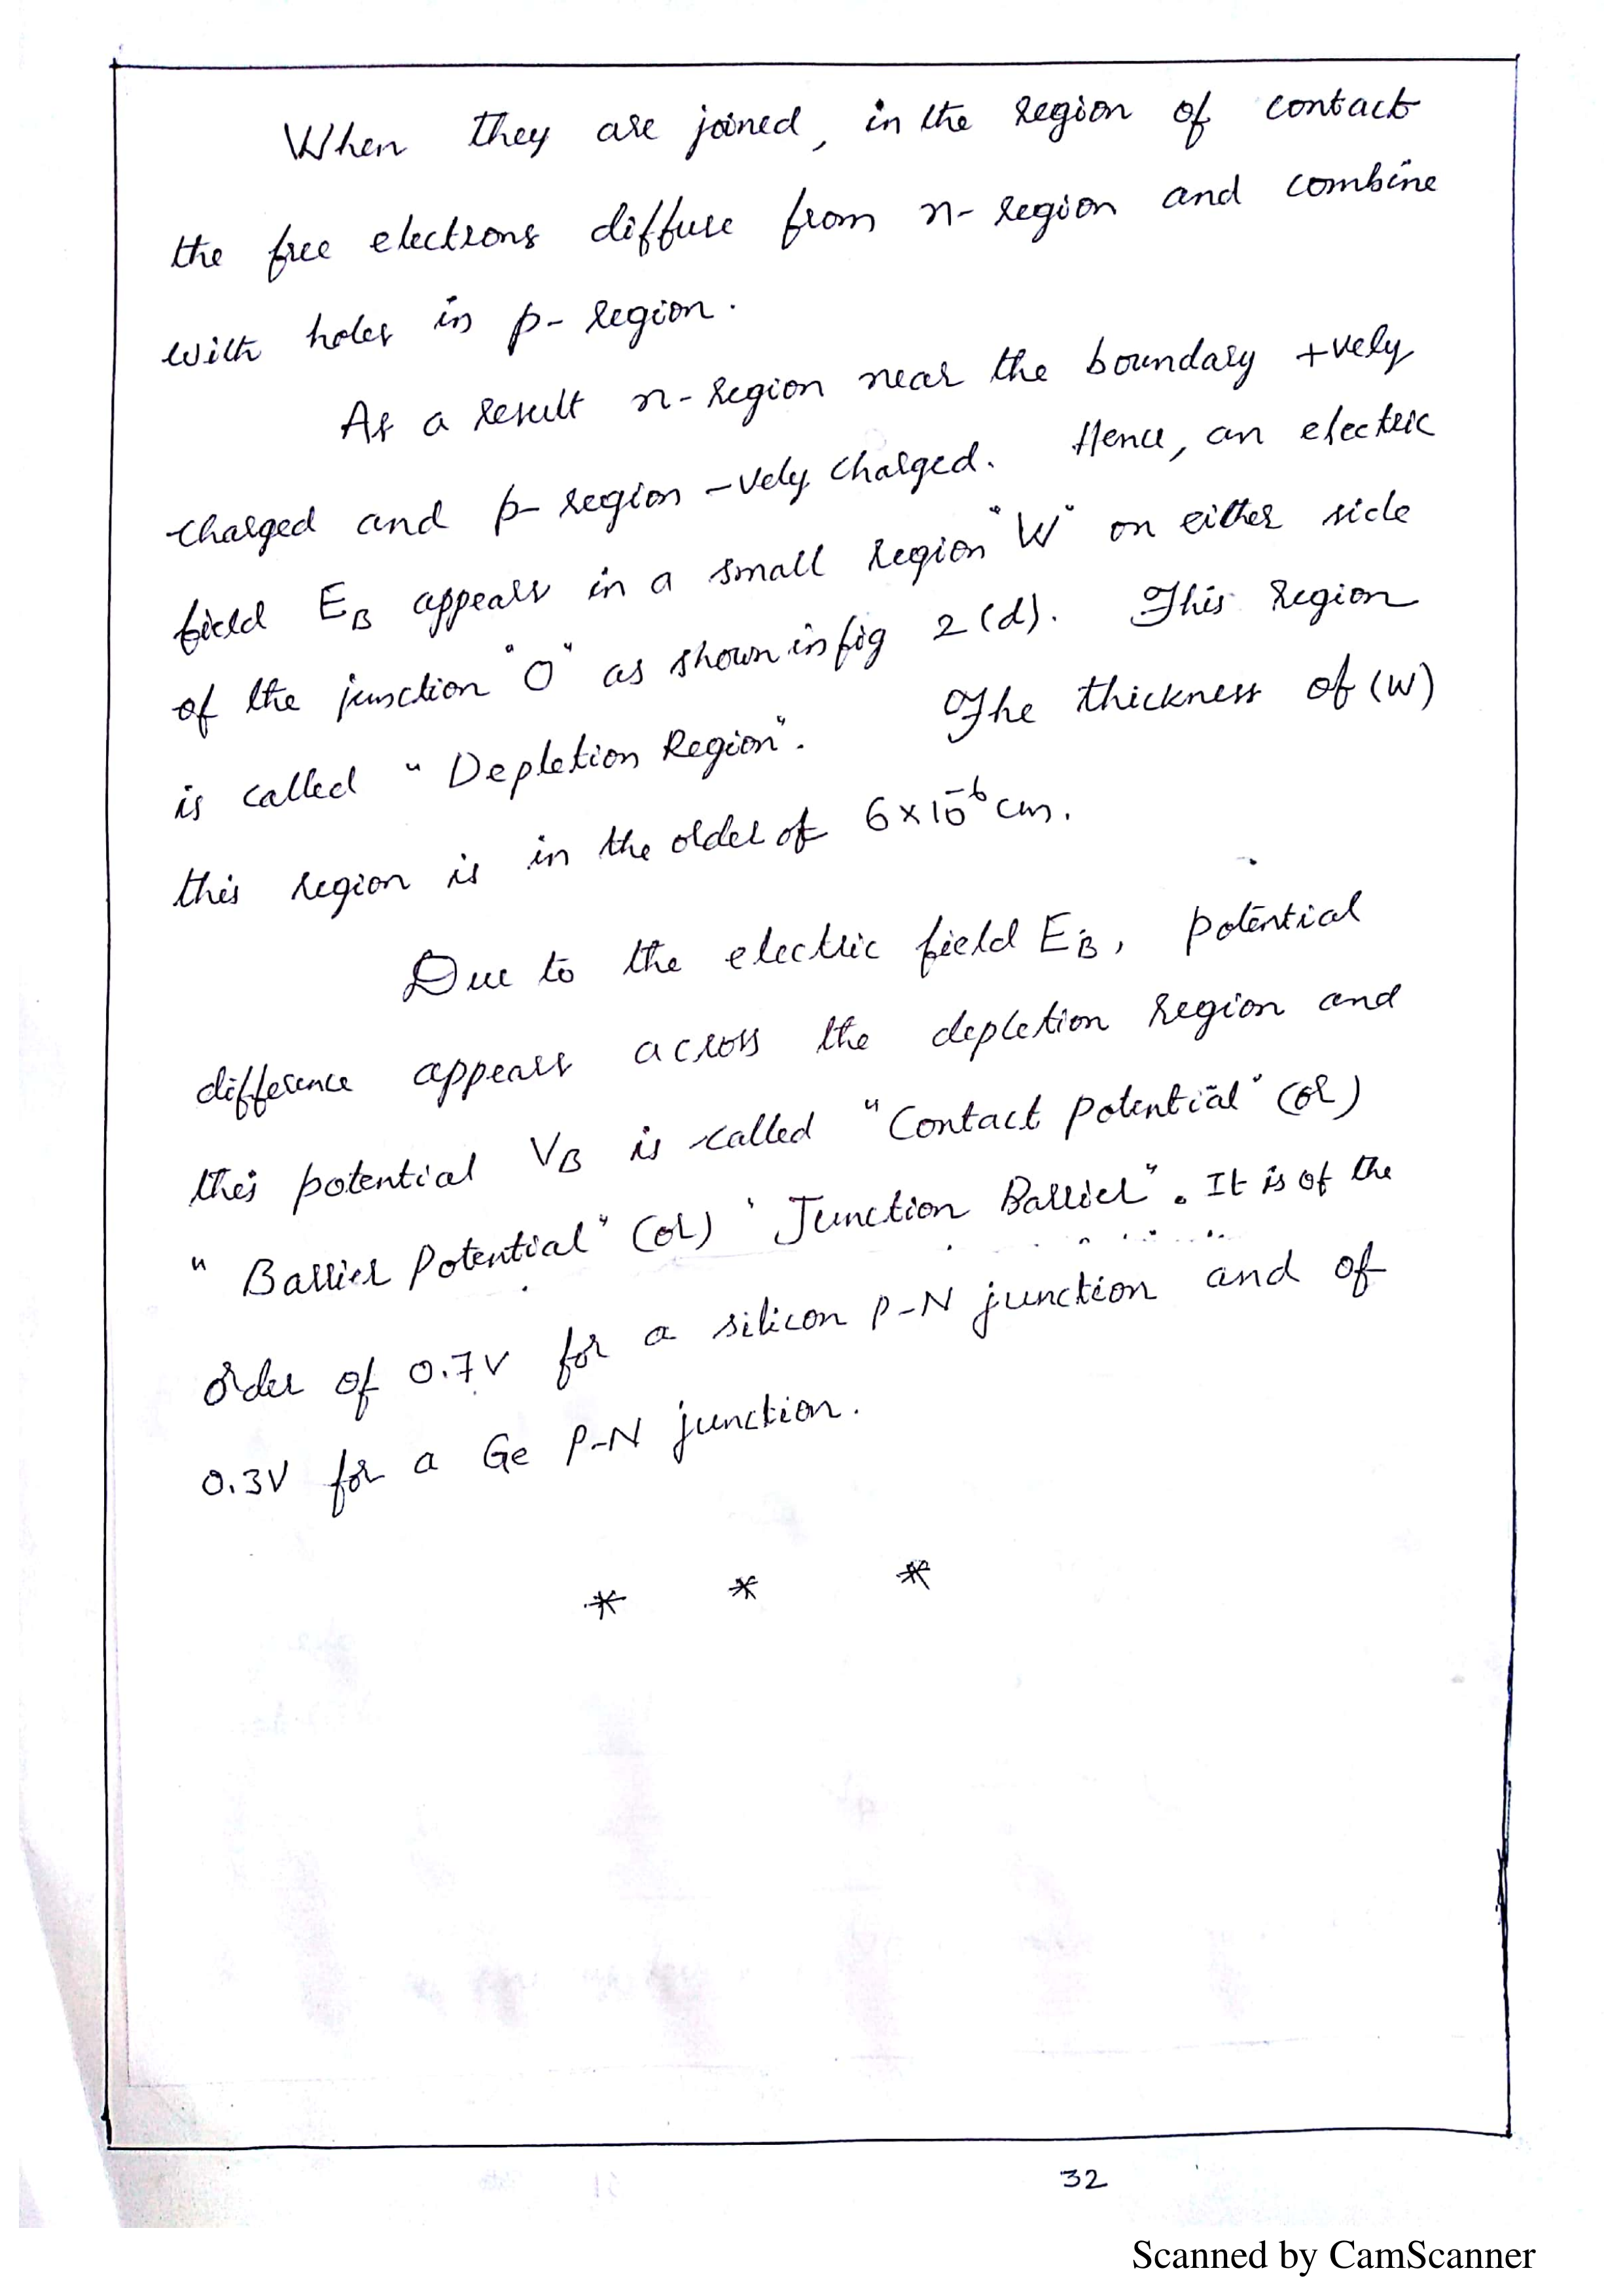 When they are joined, in the region of contact
the free electrons diffuse from n-region and combine
with holes in p-region.
As a result n-region near the boundary +vely
charged and p-region -vely charged. Hence, an electric
field E_B appears in a small region "W" on either side
of the junction "O" as shown in fig 2(d). This region
is called "Depletion Region". The thickness of (W)
this region is in the order of 6×10⁻⁶ cm.
Due to the electric field E_B, potential
difference appears across the depletion region and
this potential V_B is called "Contact potential" (or)
"Barrier Potential" (or) 'Junction Barrier". It is of the
order of 0.7V for a silicon P-N junction and of
0.3V for a Ge P-N junction.
* * *
32
Scanned by CamScanner